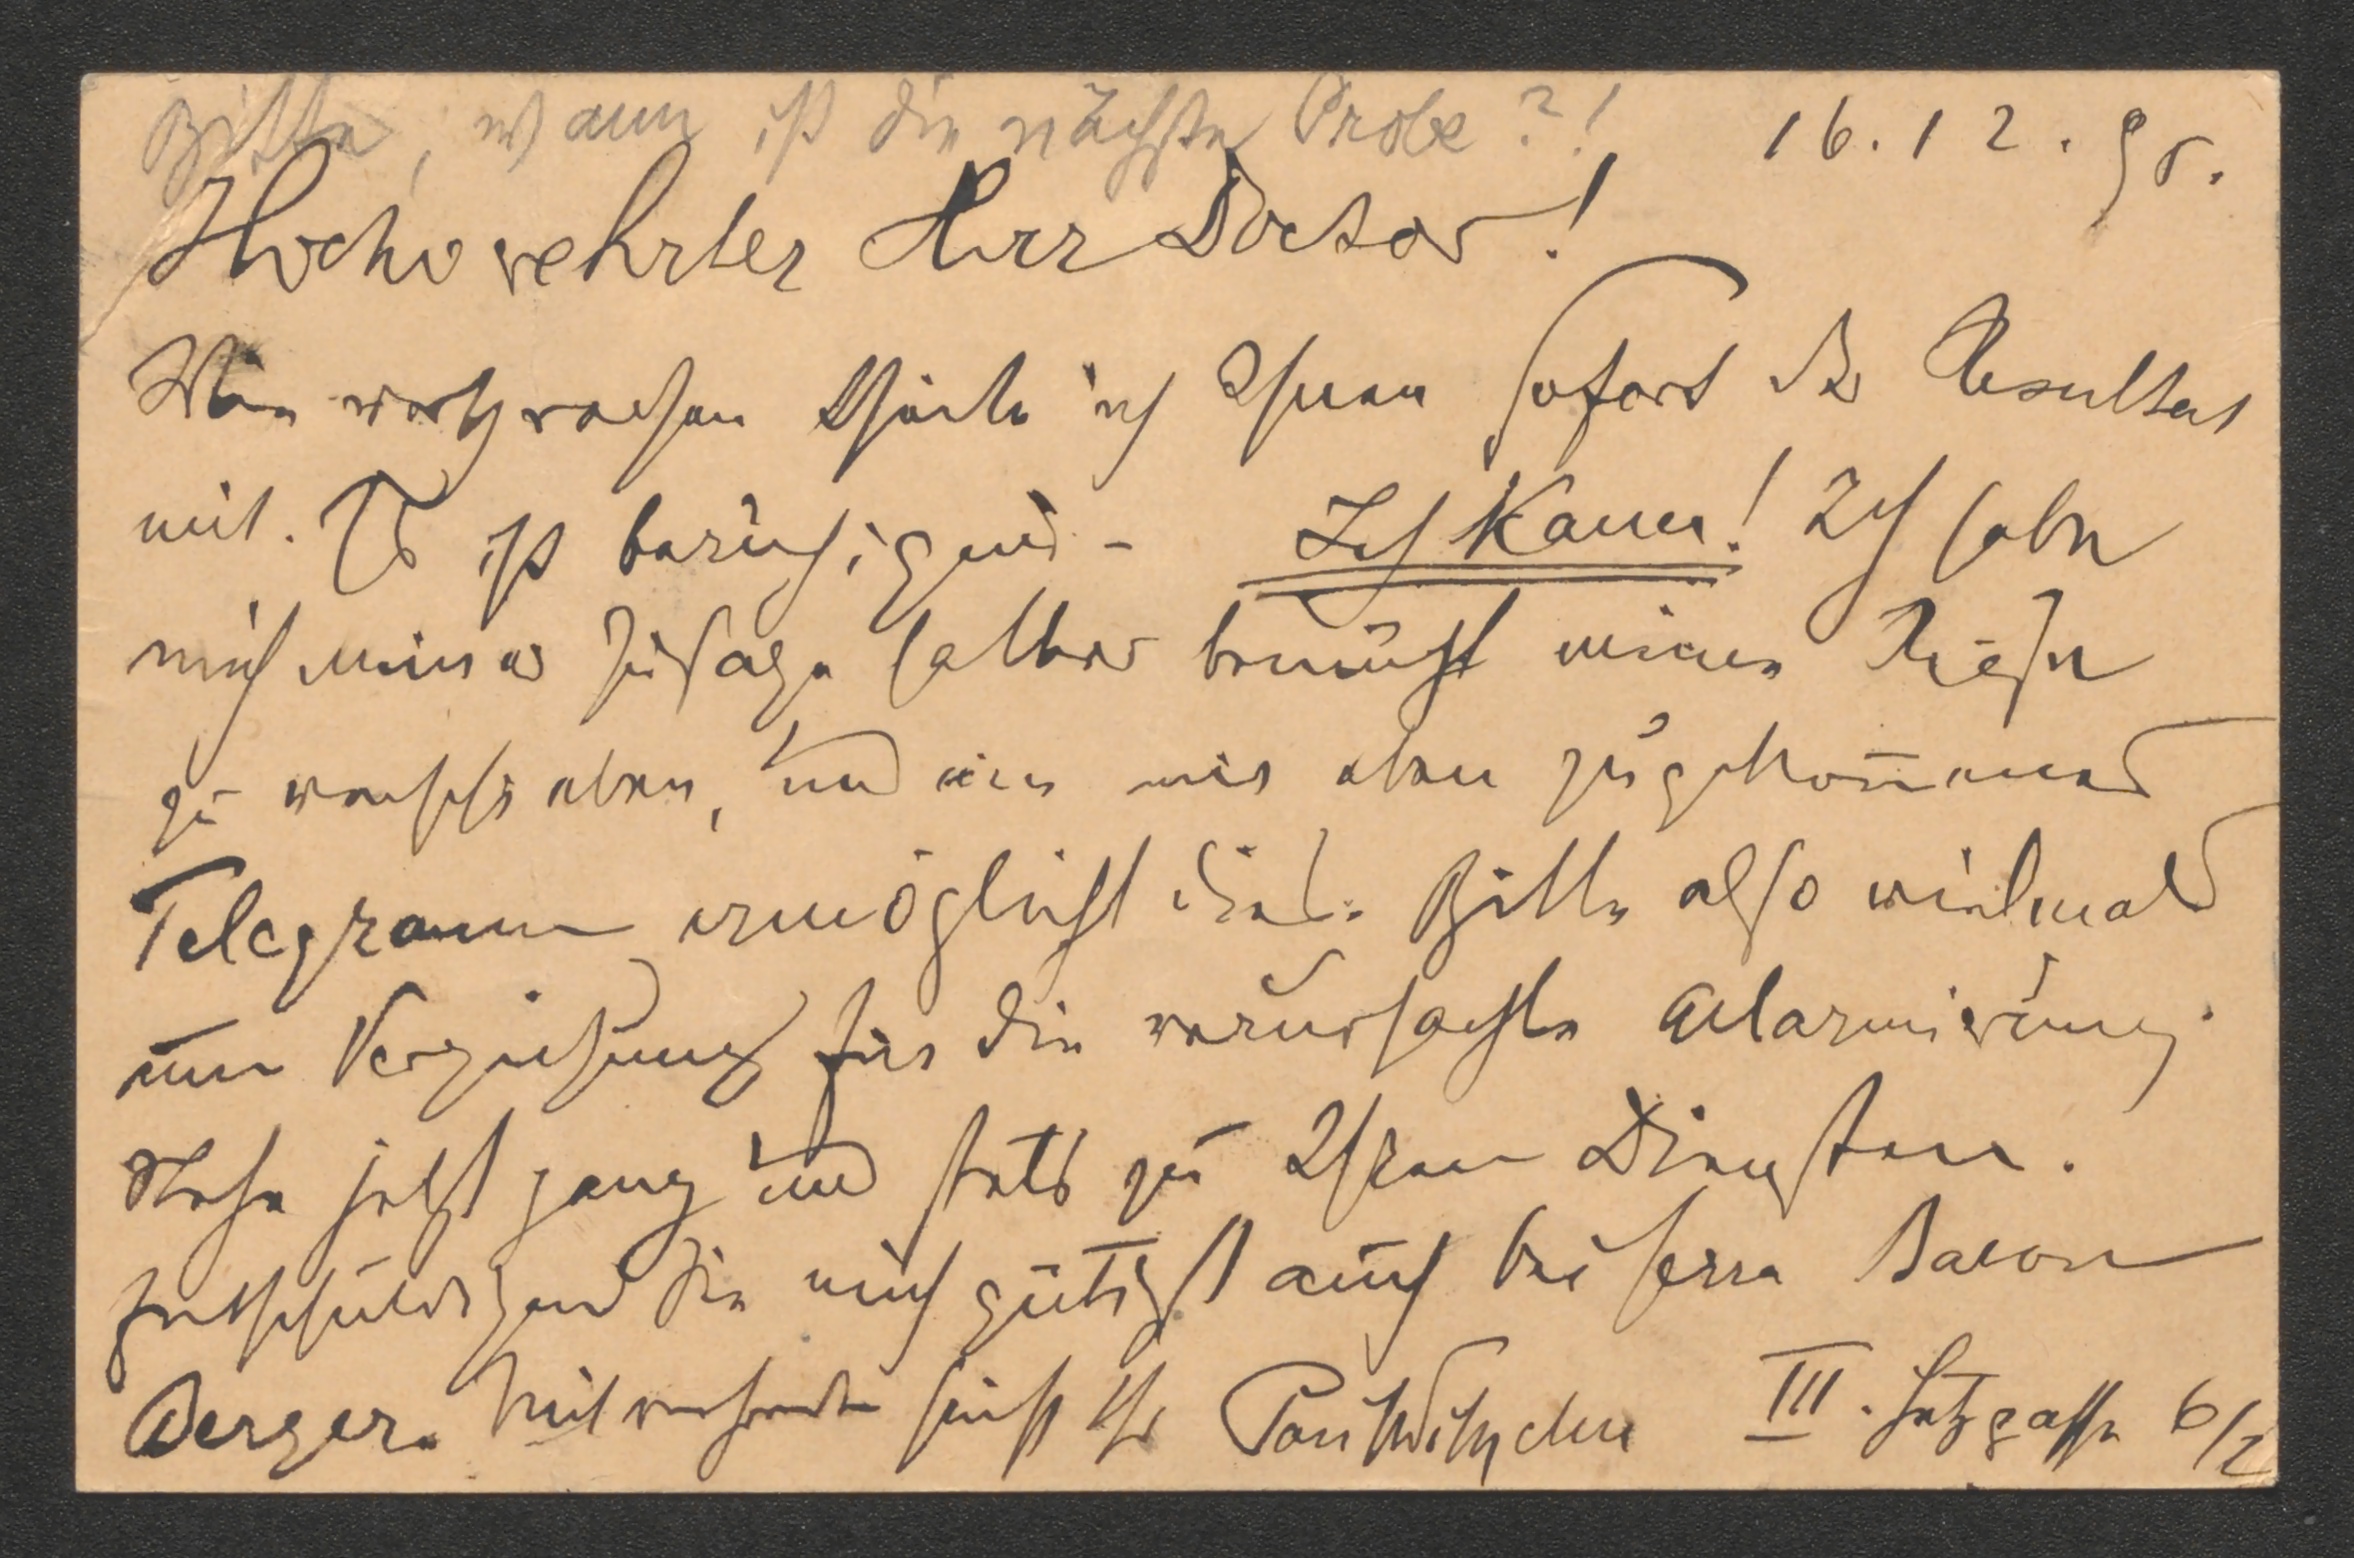 Bitte, wann ist die nächste Probe?!
16.12.95.
Hochverehrter Herr Doctor!
Wie versprochen theile ich Ihnen sofort das Resultat
mit. Es ist beruhigend – Ich kann! Ich habe
mich meiner Zusage halber bemüht meine Reise
zu verschieben, und ein mir eben zugekom̅enes
Telegramm ermöglicht dies. Bitte also vielmals
um Verzeihung für die verursachte Alarmierung.
Stehe jetzt ganz und stets zu Ihren Diensten.
Entschuldigen Sie mich gütigst auch bei Herrn Baron
Berger. Mit Ihr Paul Wilhelm III. gasse 6/2